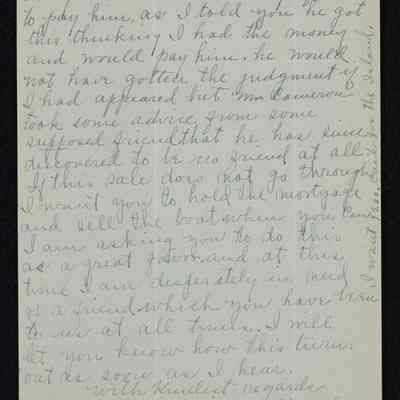 to pay him, as I told you he got
this thinking I had the money
and would pay him. he would
not have gotten the judgment if
I had appeared but Mr Cameron
took some advice from some
supposed friend that he has since
discovered to be no friend at all.
If this sale does not go through
I want you to hold the mortgage
and sell the boat when you can
I am asking you to do this
as a great favor and at this
time I am desperately in need
of a friend which you have been
to us at all times. I will
let you know how this turns
out as soon as I hear.
With Kindest regards
I want for the Island.